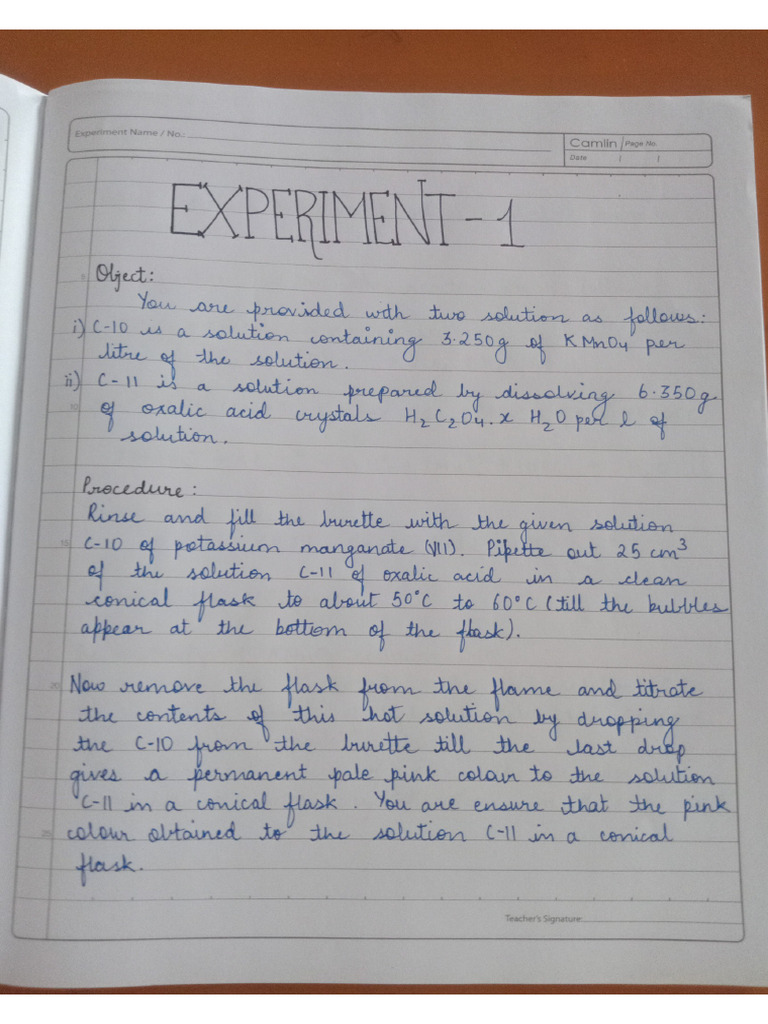 Experiment Name / No.:
Camlin Page No.
Date / /
EXPERIMENT - 1
Object:
You are provided with two solution as follows:
i) C-10 is a solution containing 3.250g of KMnO4 per
litre of the solution.
ii) C-11 is a solution prepared by dissolving 6.350g
of oxalic acid crystals H2C2O4.x H2O per l of
solution.
Procedure:
Rinse and fill the burette with the given solution
C-10 of potassium manganate (VII). Pipette out 25 cm³
of the solution C-11 of oxalic acid in a clean
conical flask to about 50°C to 60°C (till the bubbles
appear at the bottom of the flask).
Now remove the flask from the flame and titrate
the contents of this hot solution by dropping
the C-10 from the burette till the last drop
gives a permanent pale pink colour to the solution
C-11 in a conical flask. You are ensure that the pink
colour obtained to the solution C-11 in a conical
flask.
Teacher's Signature: